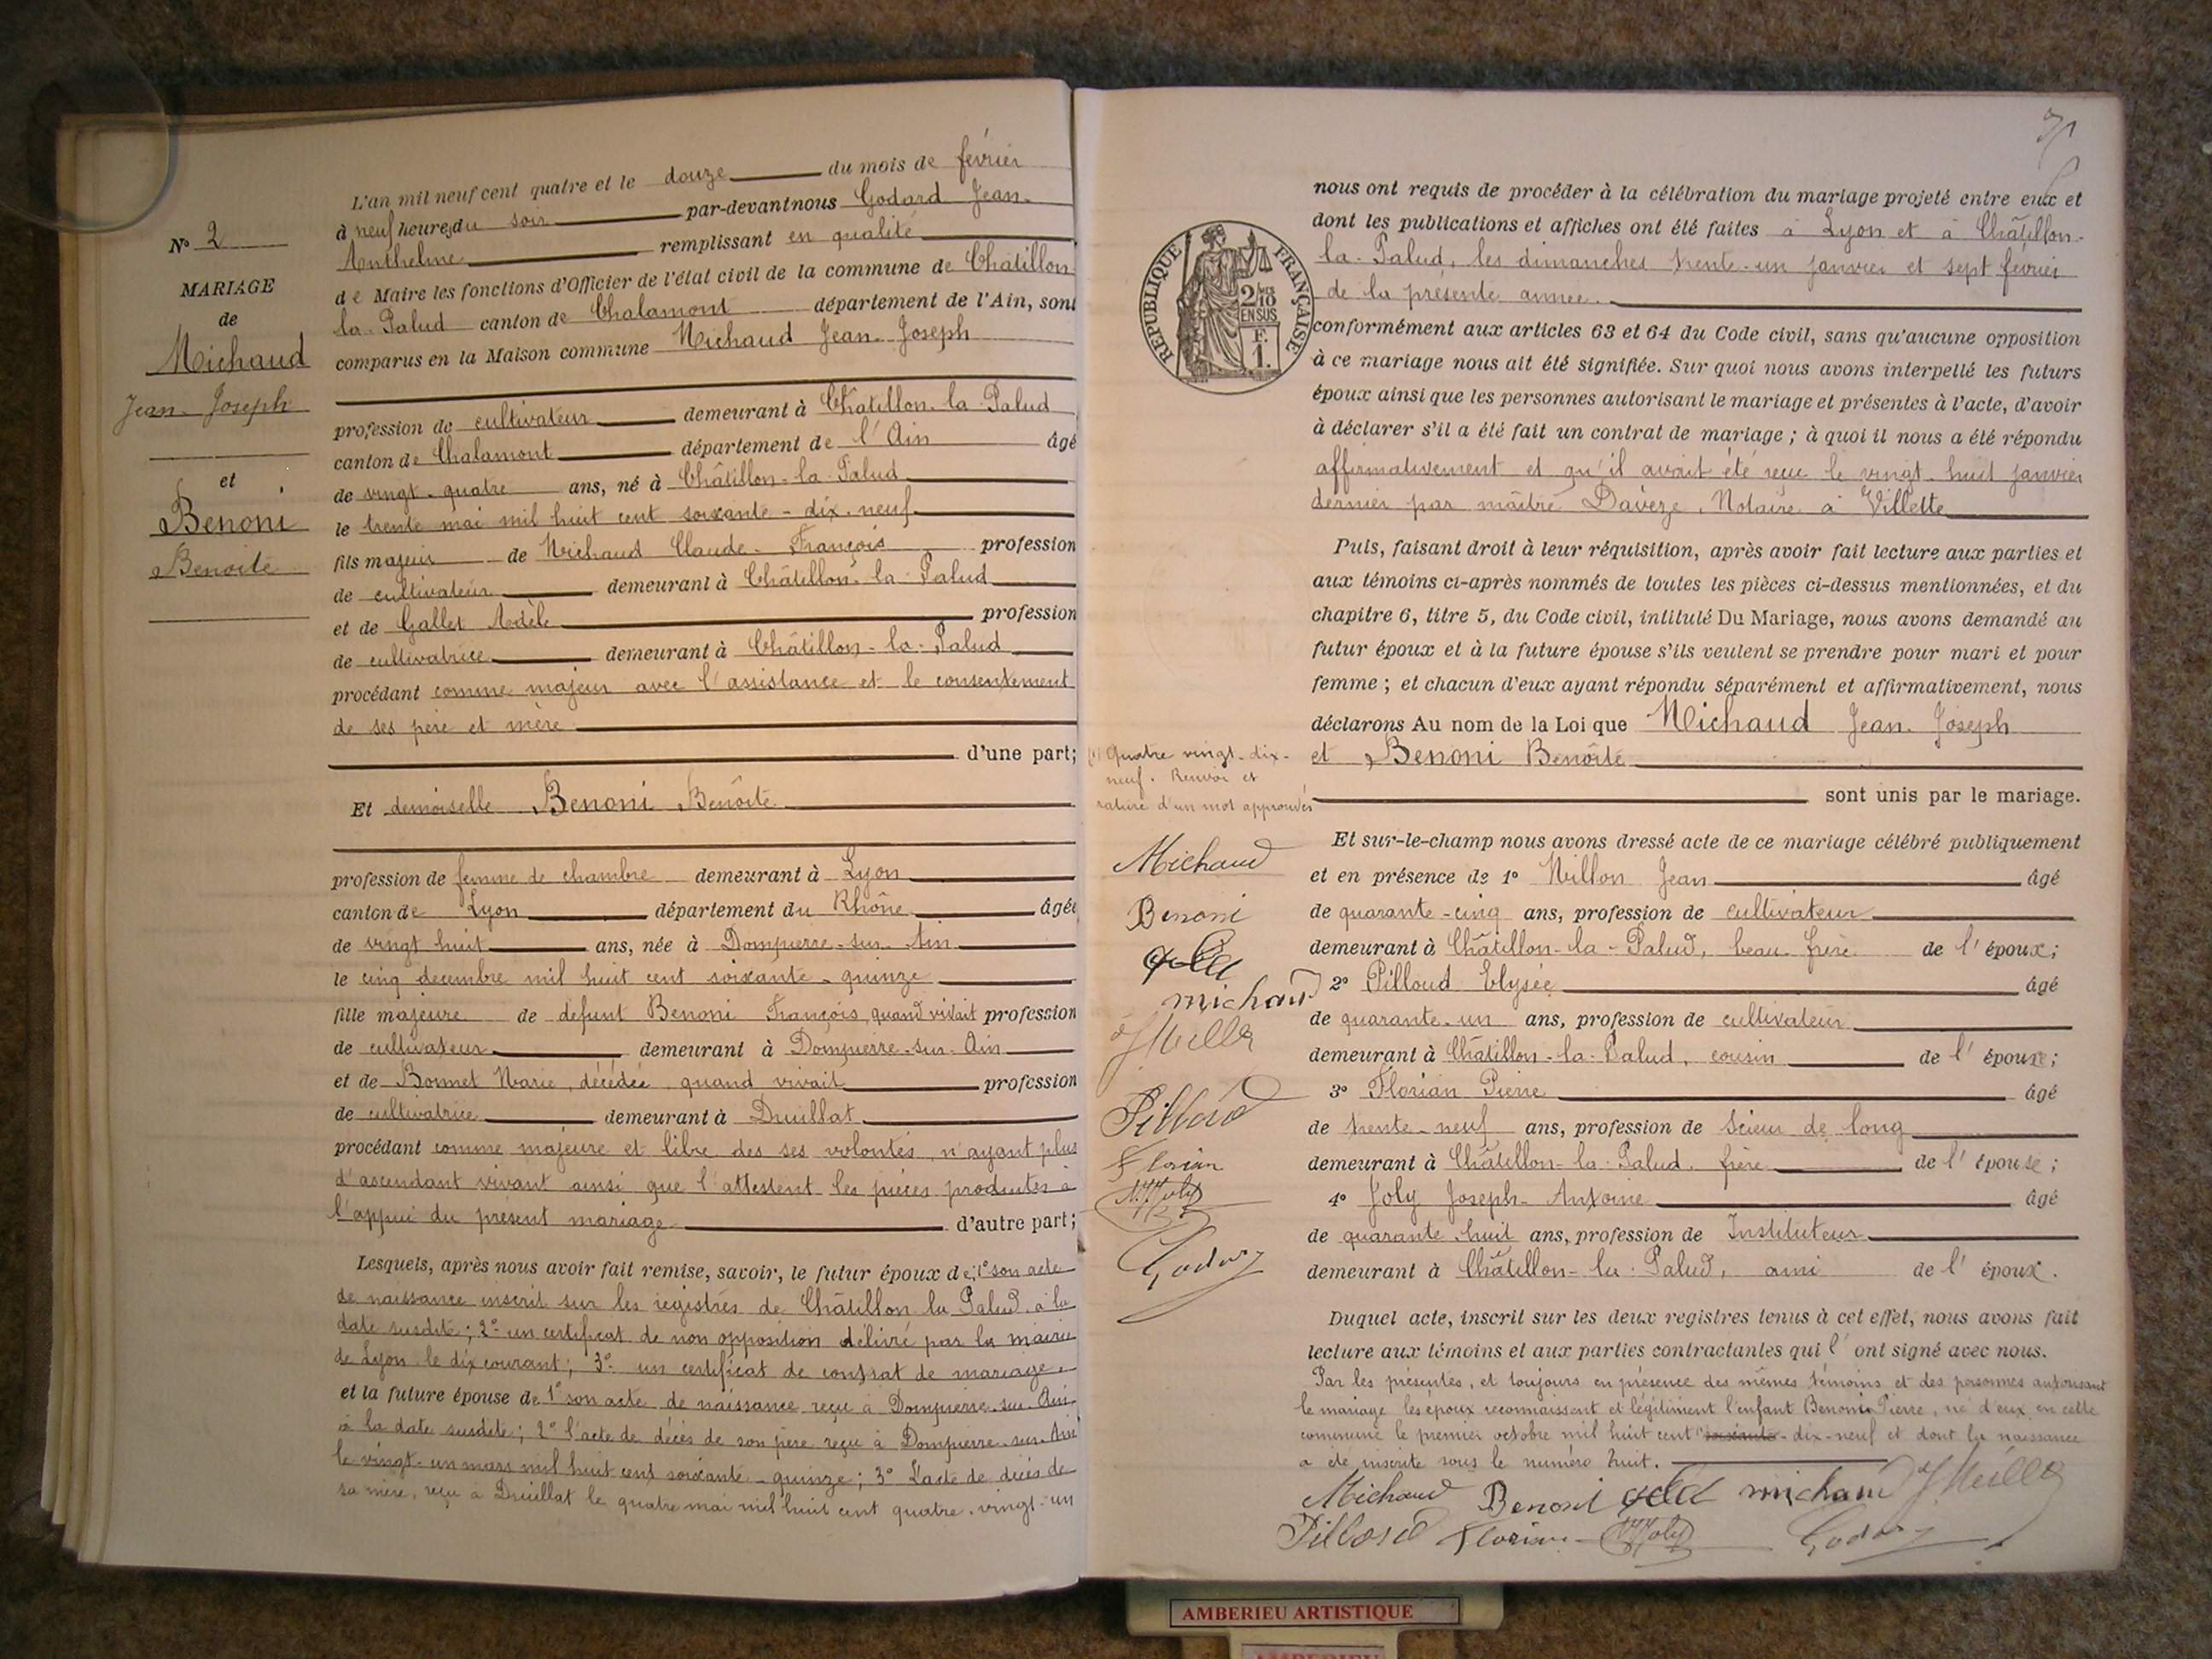 L'an mil neuf cent quatre et le douze du mois de février
à neuf heures du soir par-devant nous Godard Jean-
Anthelme remplissant en qualité
de Maire les fonctions d'Officier de l'état civil de la commune de Châtillon-
la-Palud canton de Chalamont département de l'Ain, sont
comparus en la Maison commune Michaud Jean-Joseph
profession de cultivateur demeurant à Châtillon-la-Palud
canton de Chalamont département de l'Ain âgé
de vingt-quatre ans, né à Châtillon-la-Palud
le trente mai mil huit cent soixante-dix-neuf
fils majeur de Michaud Claude-François profession
de cultivateur demeurant à Châtillon-la-Palud
et de Gallet Adèle profession
de cultivatrice demeurant à Châtillon-la-Palud
procédant comme majeur avec l'assistance et le consentement
de ses père et mère
d'une part;
Et demoiselle Benoni Benoîte
profession de femme de chambre demeurant à Lyon
canton de Lyon département du Rhône âgée
de vingt huit ans, née à Dompierre-sur-Ain
le cinq décembre mil huit cent soixante-quinze
fille majeure de défunt Benoni François, quand vivait profession
de cultivateur demeurant à Dompierre-sur-Ain
et de Bonnet Marie, décédée quand vivait profession
de cultivatrice demeurant à Druillat
procédant comme majeure et libre des ses volontés n'ayant plus
d'ascendant vivant ainsi que l'attestent les pièces produites à
l'appui du présent mariage d'autre part;
Lesquels, après nous avoir fait remise, savoir, le futur époux de: 1° son acte
de naissance inscrit sur les registres de Châtillon la Palud, à la
date susdite; 2° un certificat de non opposition délivré par la mairie
de Lyon le dix courant; 3° un certificat de contrat de mariage.
et la future épouse de 1° son acte de naissance reçu à Dompierre-sur-Ain
à la date susdite; 2° l'acte de décès de son père reçu à Dompierre-sur-Ain
le vingt-un mars mil huit cent soixante-quinze; 3° L'acte de décès de
sa mère, reçu à Druillat le quatre mai mil huit cent quatre-vingt-un
N° 2
MARIAGE
de
Michaud
Jean-Joseph
et
Benoni
Benoîte
71
nous ont requis de procéder à la célébration du mariage projeté entre eux et
dont les publications et affiches ont été faites à Lyon et à Châtillon-
la-Palud, les dimanches trente-un janvier et sept février
de la présente année.
conformément aux articles 63 et 64 du Code civil, sans qu'aucune opposition
à ce mariage nous ait été signifiée. Sur quoi nous avons interpellé les futurs
époux ainsi que les personnes autorisant le mariage et présentes à l'acte, d'avoir
à déclarer s'il a été fait un contrat de mariage; à quoi il nous a été répondu
affirmativement et qu'il avait été reçu le vingt-huit janvier
dernier par maître Davèze, Notaire à Villette
Puis, faisant droit à leur réquisition, après avoir fait lecture aux parties et
aux témoins ci-après nommés de toutes les pièces ci-dessus mentionnées, et du
chapitre 6, titre 5, du Code civil, intitulé Du Mariage, nous avons demandé au
futur époux et à la future épouse s'ils veulent se prendre pour mari et pour
femme; et chacun d'eux ayant répondu séparément et affirmativement, nous
déclarons Au nom de la Loi que Michaud Jean-Joseph
et Benoni Benoîte
sont unis par le mariage.
Et sur-le-champ nous avons dressé acte de ce mariage célébré publiquement
et en présence de 1° Millon Jean âgé
de quarante-cinq ans, profession de cultivateur
demeurant à Châtillon-la-Palud, beau-frère de l'époux;
2° Pilloud Elysée âgé
de quarante-un ans, profession de cultivateur
demeurant à Châtillon-la-Palud, cousin de l'époux;
3° Florian Pierre âgé
de trente-neuf ans, profession de scieur de long
demeurant à Châtillon-la-Palud frère de l'épouse;
4° Joly Joseph-Antoine âgé
de quarante huit ans, profession de Instituteur
demeurant à Châtillon-la-Palud, ami de l'époux.
Duquel acte, inscrit sur les deux registres tenus à cet effet, nous avons fait
lecture aux témoins et aux parties contractantes qui l'ont signé avec nous.
Par les présentes, et toujours en présence des mêmes témoins et des personnes autorisant
le mariage les époux reconnaissent et légitiment l'enfant Benoni Pierre, né d'eux en cette
commune le premier octobre mil huit cent (1) soixante-dix-neuf et dont la naissance
a été inscrite sous le numéro huit.
Michaud Benoni michaud
Pilloud Florian Joly Godard
REPUBLIQUE FRANÇAISE
2/10
EN SUS
F.
1.
(1) Quatre vingt-dix-
neuf. Renvoi et
rature d'un mot approuvés
Michaud
Benoni
michaud
Pilloud
Florian
Joly
Godard
AMBERIEU ARTISTIQUE
AMBERIEU